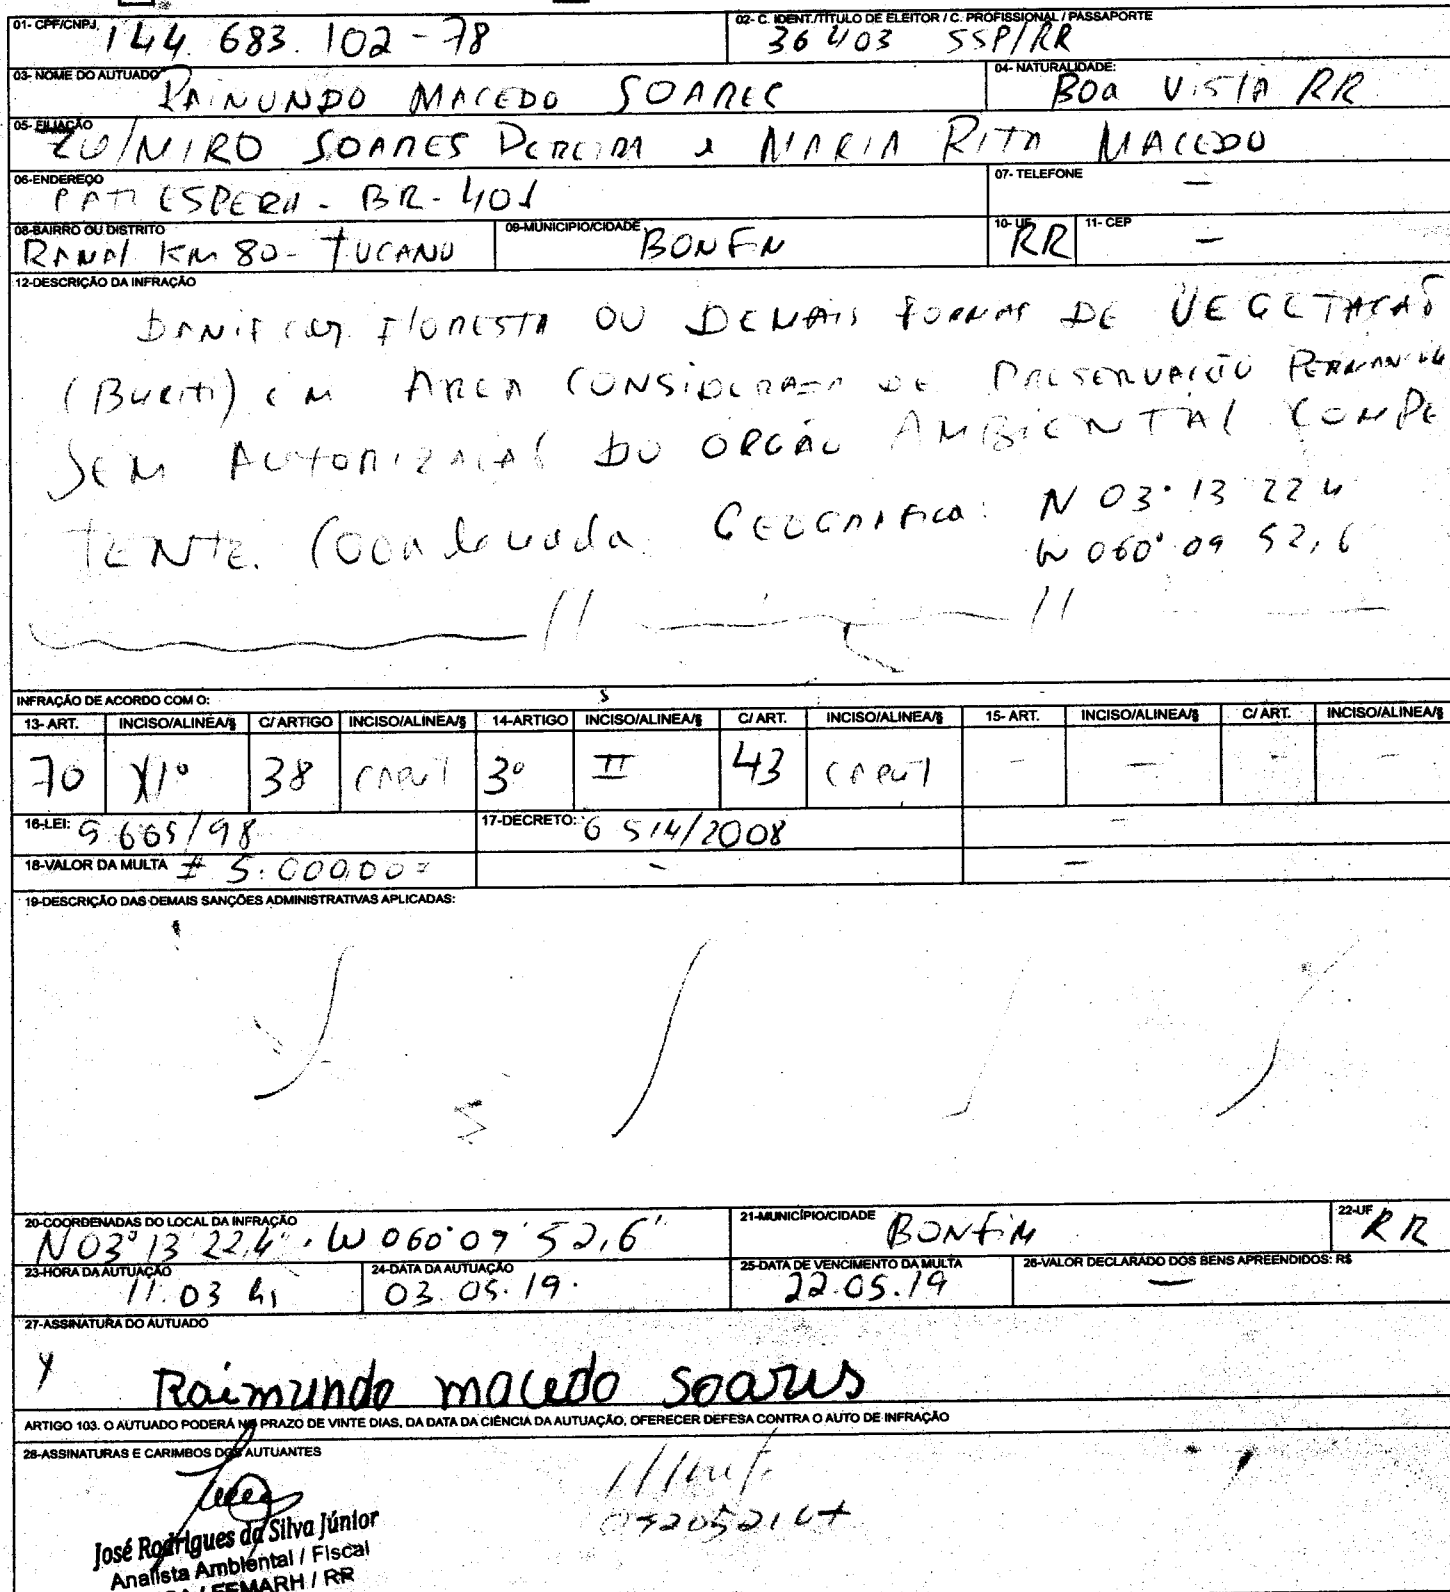 01- CPF/CNPJ 144.683.102-78 02- C. IDENT./TÍTULO DE ELEITOR / C. PROFISSIONAL / PASSAPORTE 36403 SSP/RR
03- NOME DO AUTUADO RAIMUNDO MACEDO SOARES 04- NATURALIDADE: BOa VISTA RR
05- FILIAÇÃO SOARES PEREIRA e MARIA RITA MACEDO
06-ENDEREÇO ESPERA - BR-401 07- TELEFONE —
08-BAIRRO OU DISTRITO KM 80- TUCANO 09-MUNICIPIO/CIDADE BONFIM 10- UF RR 11- CEP —
12-DESCRIÇÃO DA INFRAÇÃO
DANIFICAR FLORESTA OU DEMAIS FORMAS DE VEGETAÇÃO
(BURITI) EM AREA CONSIDERADA DE PRESERVAÇÃO PERMANENTE
SEM AUTORIZAÇÃO DO ORGÃO AMBIENTAL COMPE
TENTE. Coordenada GEOGRAFICA: N 03° 13 22 4
W 060° 09 52,6
INFRAÇÃO DE ACORDO COM O:
13- ART. INCISO/ALINEA/§ C/ ARTIGO INCISO/ALINEA/§ 14-ARTIGO INCISO/ALINEA/§ C/ ART. INCISO/ALINEA/§ 15- ART. INCISO/ALINEA/§ C/ ART. INCISO/ALINEA/§
70 38 CAPUT 3° II 43 CAPUT — — — —
16-LEI: 9.605/98 17-DECRETO: 6514/2008 —
18-VALOR DA MULTA # 5.000,00 = — —
19-DESCRIÇÃO DAS DEMAIS SANÇÕES ADMINISTRATIVAS APLICADAS:
20-COORDENADAS DO LOCAL DA INFRAÇÃO N 03° 13' 22,4" . W 060° 09' 52,6' 21-MUNICÍPIO/CIDADE BONFIM 22-UF RR
23-HORA DA AUTUAÇÃO 11:03 hs 24-DATA DA AUTUAÇÃO 03.05.19. 25-DATA DE VENCIMENTO DA MULTA 22.05.19 26-VALOR DECLARADO DOS BENS APREENDIDOS: R$ —
27-ASSINATURA DO AUTUADO
Raimundo macedo soares
ARTIGO 103. O AUTUADO PODERÁ NO PRAZO DE VINTE DIAS, DA DATA DA CIÊNCIA DA AUTUAÇÃO, OFERECER DEFESA CONTRA O AUTO DE INFRAÇÃO
28-ASSINATURAS E CARIMBOS DOS AUTUANTES
José Rodrigues da Silva Júnior
Analista Ambiental / Fiscal
/ FEMARH / RR